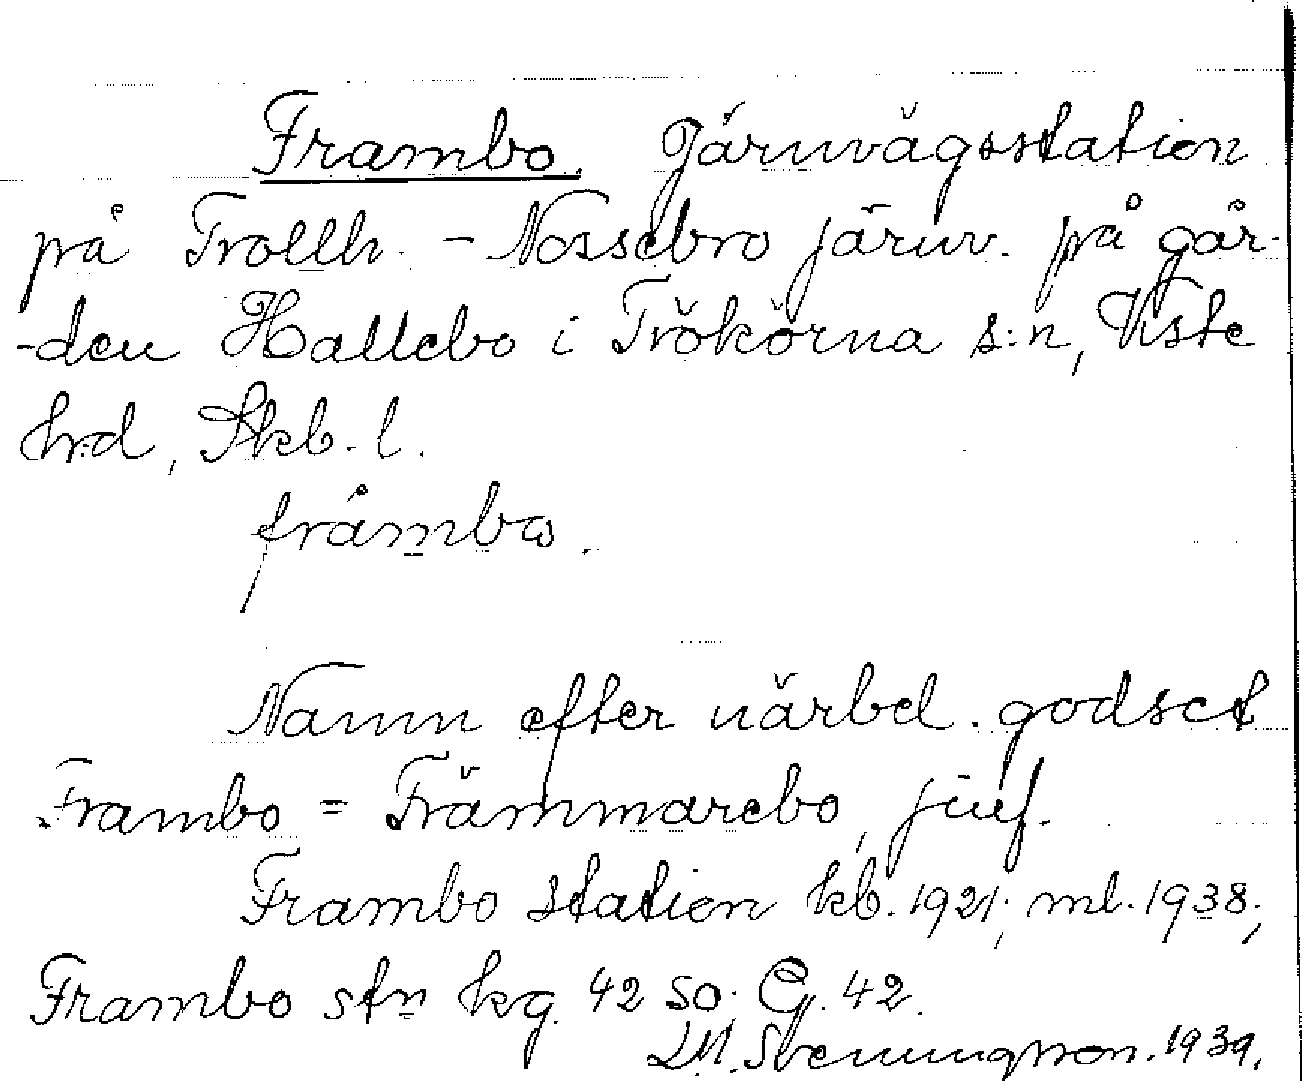 Frambo. Järnvägsstation
på Trollh. - Nossebro järnv. på går-
-den Hallebo i Trökörna s:n, Viste
hrd, Skb. l.
fråmbω.
Namn efter närbel. godset
Frambo = Främmarebo, jmf.
Frambo station kb. 1921; ml. 1938;
Frambo stn kg. 42 SO; G. 42.
D.M. Svenungsson. 1939.